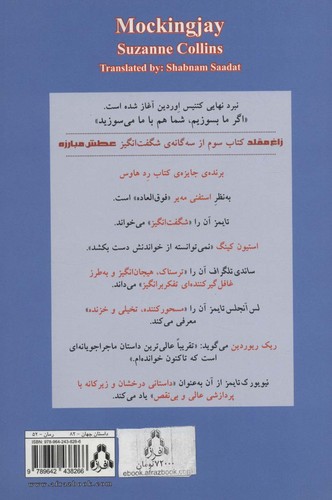 Mockingjay
Suzanne Collins
Translated by: Shabnam Saadat
نبرد نهایی کتنیس اوردین آغاز شده است.
«اگر ما بسوزیم، شما هم با ما می‌سوزید»
زاغ مقلد کتاب سوم از سه‌گانه‌ی شگفت‌انگیز عطش مبارزه
برنده‌ی جایزه‌ی کتاب رد هاوس
به‌نظر استفنی مه‌یر «فوق‌العاده» است.
تایمز آن را «شگفت‌انگیز» می‌خواند.
استیون کینگ «نمی‌توانسته از خواندنش دست بکشد».
ساندی تلگراف آن را «ترسناک، هیجان‌انگیز و به‌طرز
غافل‌گیرکننده‌ای تفکربرانگیز» می‌داند.
لس آنجلس تایمز آن را «مسحورکننده، تخیلی و خزنده»
معرفی می‌کند.
ریک ریوردین می‌گوید: «تقریباً عالی‌ترین داستان ماجراجویانه‌ای
است که تاکنون خوانده‌ام.»
نیویورک تایمز از آن به‌عنوان «داستانی درخشان و زیرکانه با
پردازشی عالی و بی‌نقص» یاد می‌کند.
داستان جهان - ۸۲ رمان - ۵۲
ISBN: 978-964-243-826-6
9 789642 438266
www.afrazbook.com
۷۲۰۰۰ تومان
ebook.afrazbook.com